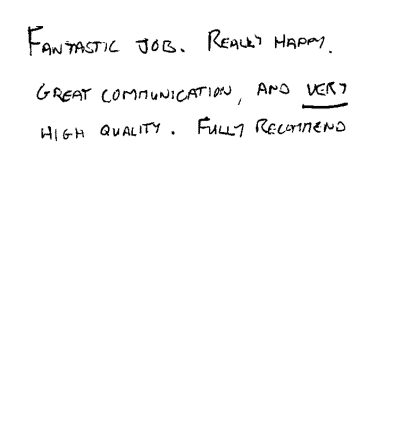 FANTASTIC JOB. REALLY HAPPY.
GREAT COMMUNICATION, AND VERY
HIGH QUALITY. FULLY RECOMMEND